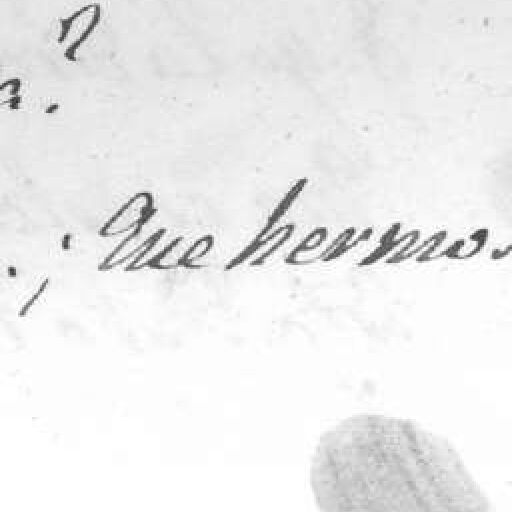 a?
.¡Que hermos